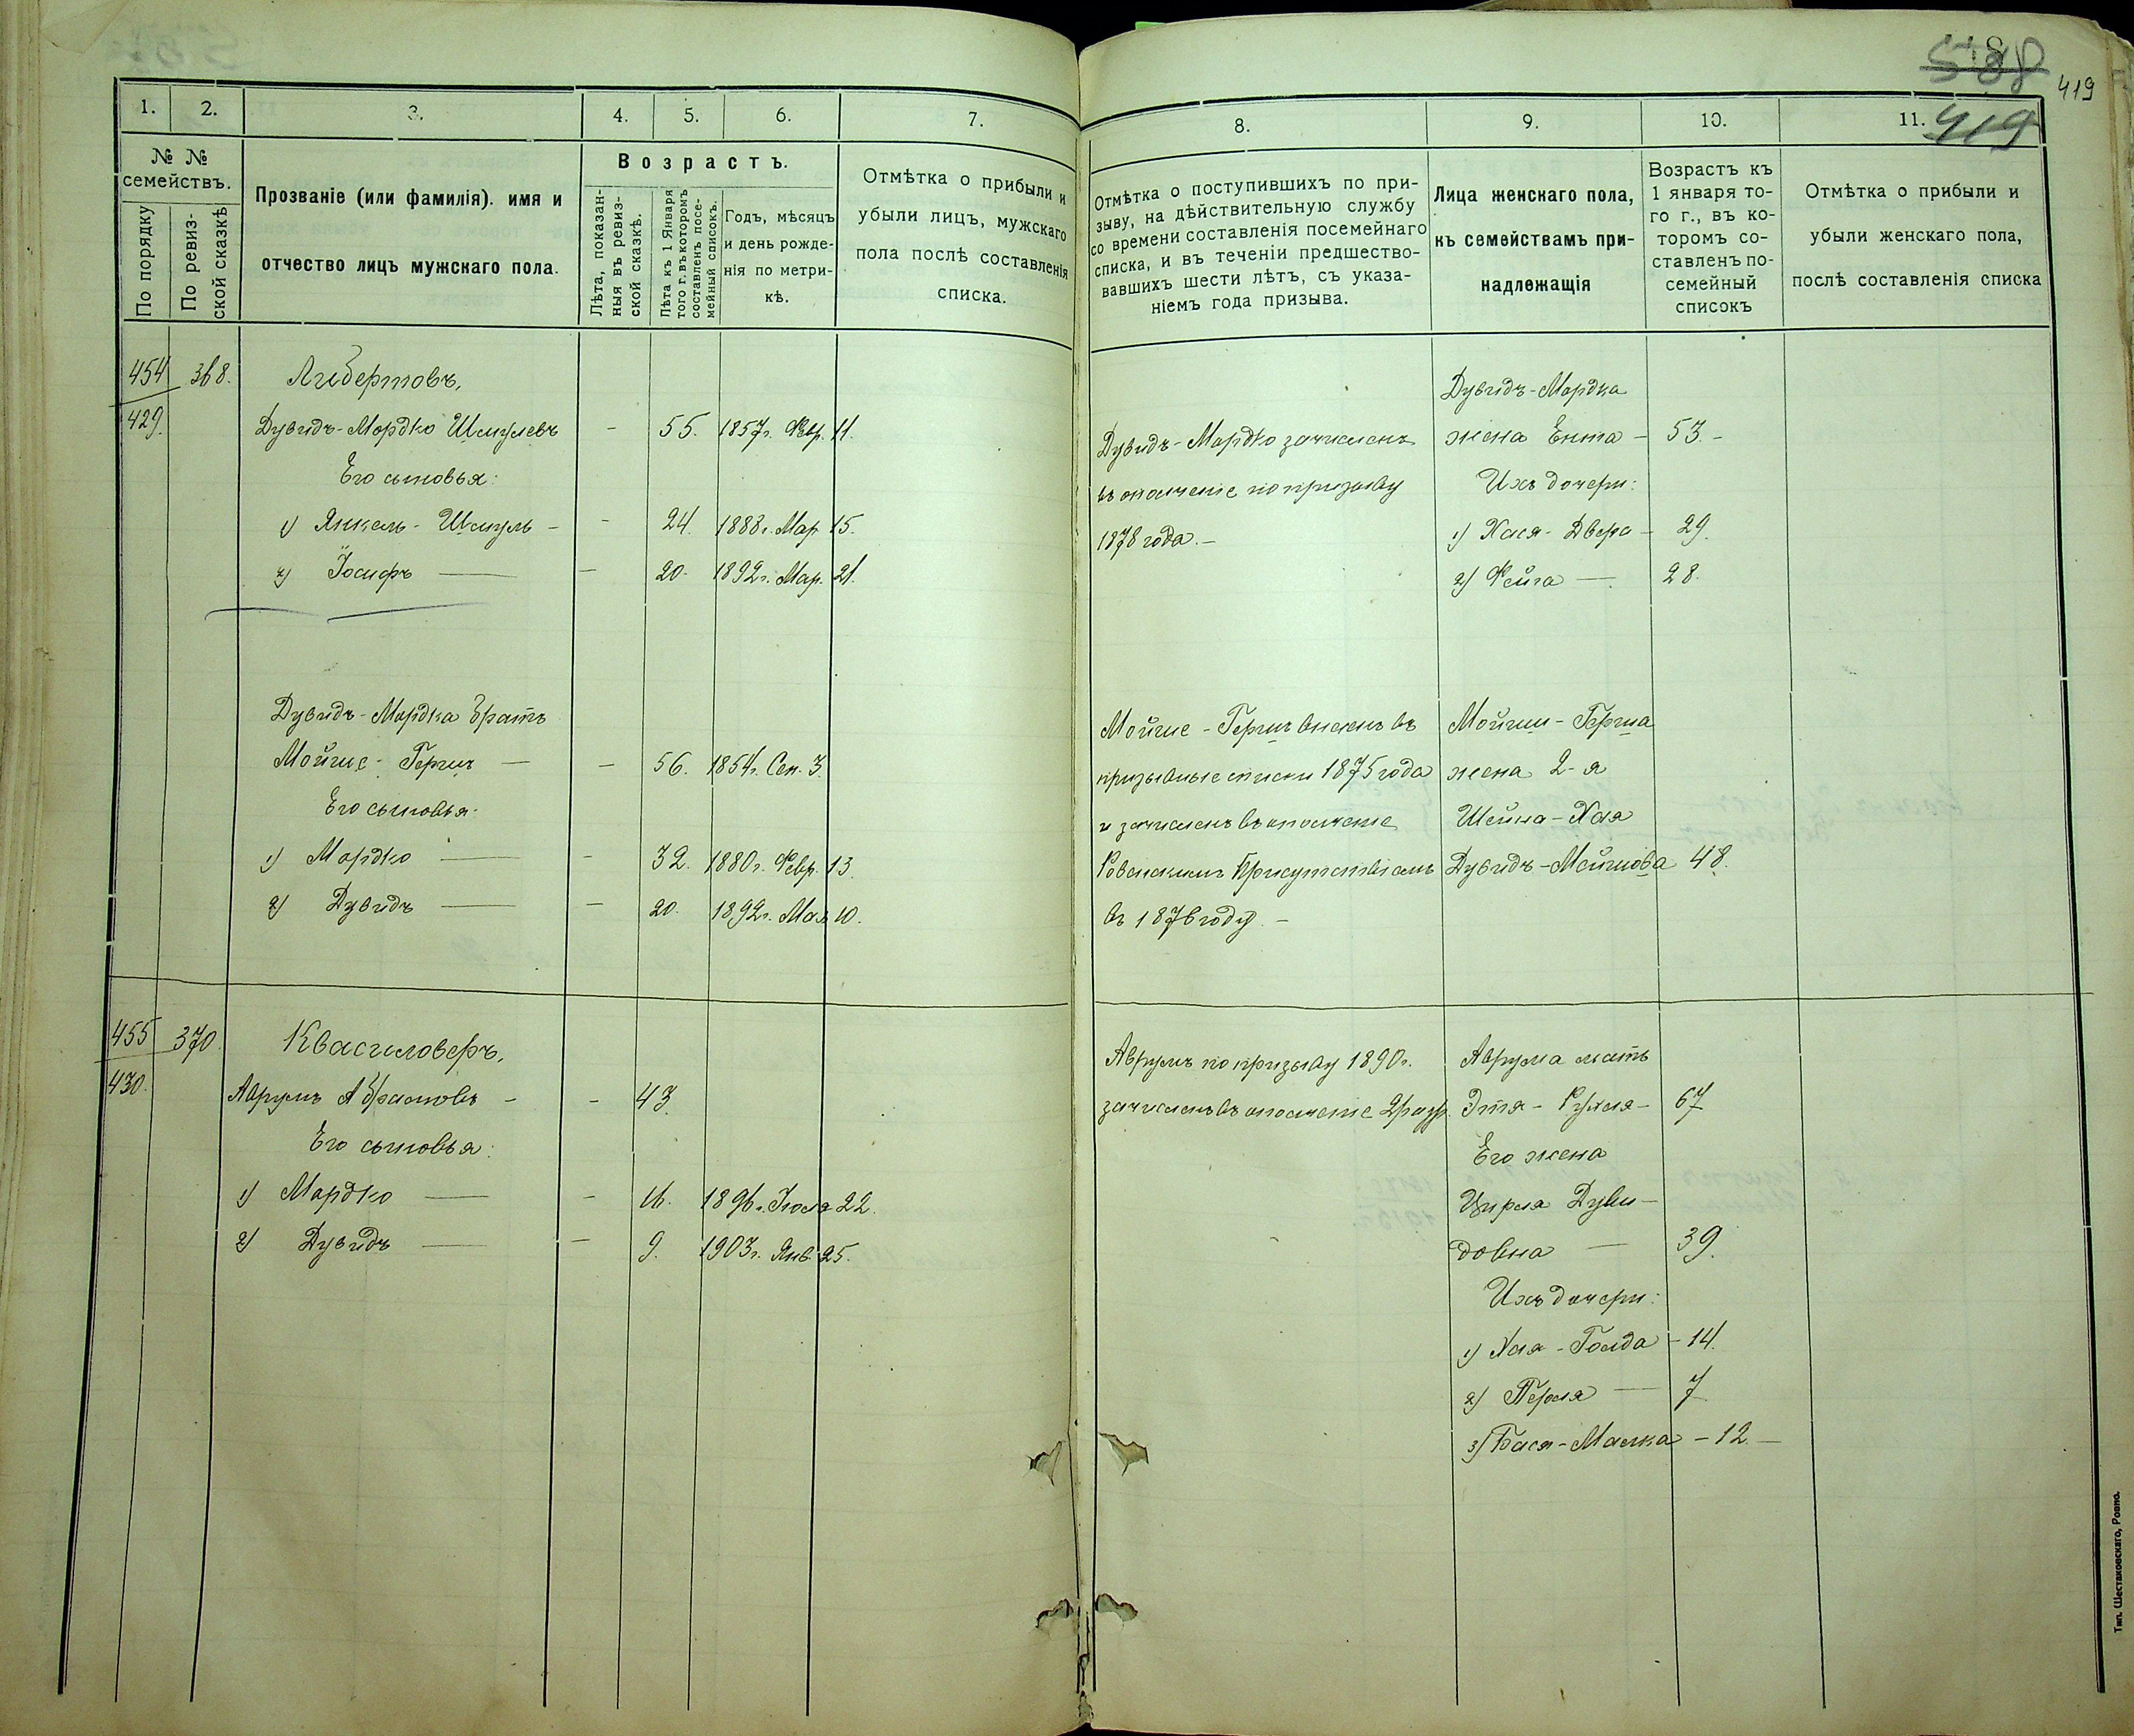 588
419
419
1.
2.
3.
4.
5.
6.
7.
№ №
семействъ.
По порядку
По ревиз-
ской сказкѣ
Прозваніе (или фамилія). имя и
отчество лицъ мужскаго пола.
Возрастъ.
Лѣта, показан-
ныя въ ревиз-
ской сказкѣ.
Лѣта къ 1 Января
того г. въ которомъ
составленъ посе-
мейный списокъ.
Годъ, мѣсяцъ
и день рожде-
нія по метри-
кѣ.
Отмѣтка о прибыли и
убыли лицъ, мужскаго
пола послѣ составленія
списка.
454 368. Либертовъ,
429. Дувидъ-Мордко Шмулевъ - 55. 1857 г. Фев. 11.
Его сыновья:
1) Янкель-Шмуль - - 24. 1888 г. Мар 15.
2) Іосифъ — - 20. 1892 г. Мар. 21.
Дувидъ-Мордка братъ
Мойше-Гершъ — - 56. 1854 г. Сен. 3.
Его сыновья:
1) Мордко — - 32. 1880 г. Февр. 13.
2) Дувидъ — - 20. 1892 г. Мая 10.
455 370. Квасиловеръ,
430. Аврумъ Абрамовъ - - 43.
Его сыновья:
1) Мордко — - 16. 1896 г. Іюля 22.
2) Дувидъ — - 9. 1903 г. Янв. 25.
8.
9.
10.
11.
Отмѣтка о поступившихъ по при-
зыву, на дѣйствительную службу
со времени составленія посемейнаго
списка, и въ теченіи предшество-
вавшихъ шести лѣтъ, съ указа-
ніемъ года призыва.
Лица женскаго пола,
къ семействамъ при-
надлежащія
Возрастъ къ
1 января то-
го г., въ ко-
торомъ со-
ставленъ по-
семейный
списокъ
Отмѣтка о прибыли и
убыли женскаго пола,
послѣ составленія списка
Дувидъ-Мордка
Дувидъ-Мордко зачисленъ жена Ента - 53.-
въ ополченіе по призыву Ихъ дочери:
1878 года.- 1) Хася-Двера - 29.
2) Фейга — 28.
Мойше-Гершъ внесенъ въ Мойши-Герша
призывные списки 1875 года жена 2-я
и зачисленъ въ ополченіе Шейна-Хая
Ровенскимъ Присутствіемъ Дувидъ-Мойшова 48.
въ 1876 году.-
Аврумъ по призыву 1890 г. Аврума мать
зачисленъ въ ополченіе 2 разр. Этя-Рухля- 67
Его жена
Цирля Дуви-
довна — 39.
Ихъ дочери:
1) Хая-Голда - 14.
2) Перля — 7
3) Бася-Малка - 12 -
Тип. Шестаковскаго, Ровно.